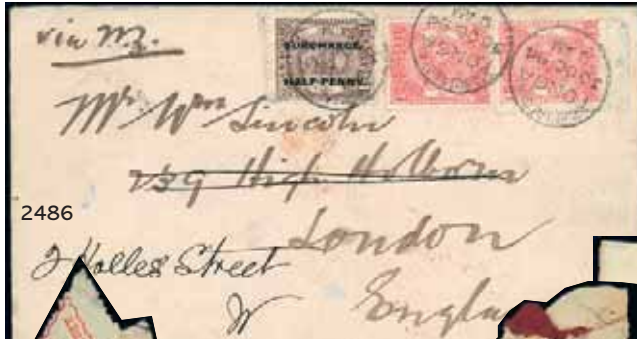 via N.Z.
SURCHARGE.
HALF-PENNY.
Mr Wm Lincoln
239 High Holborn
London
2486
2 Holles Street
W
Engla